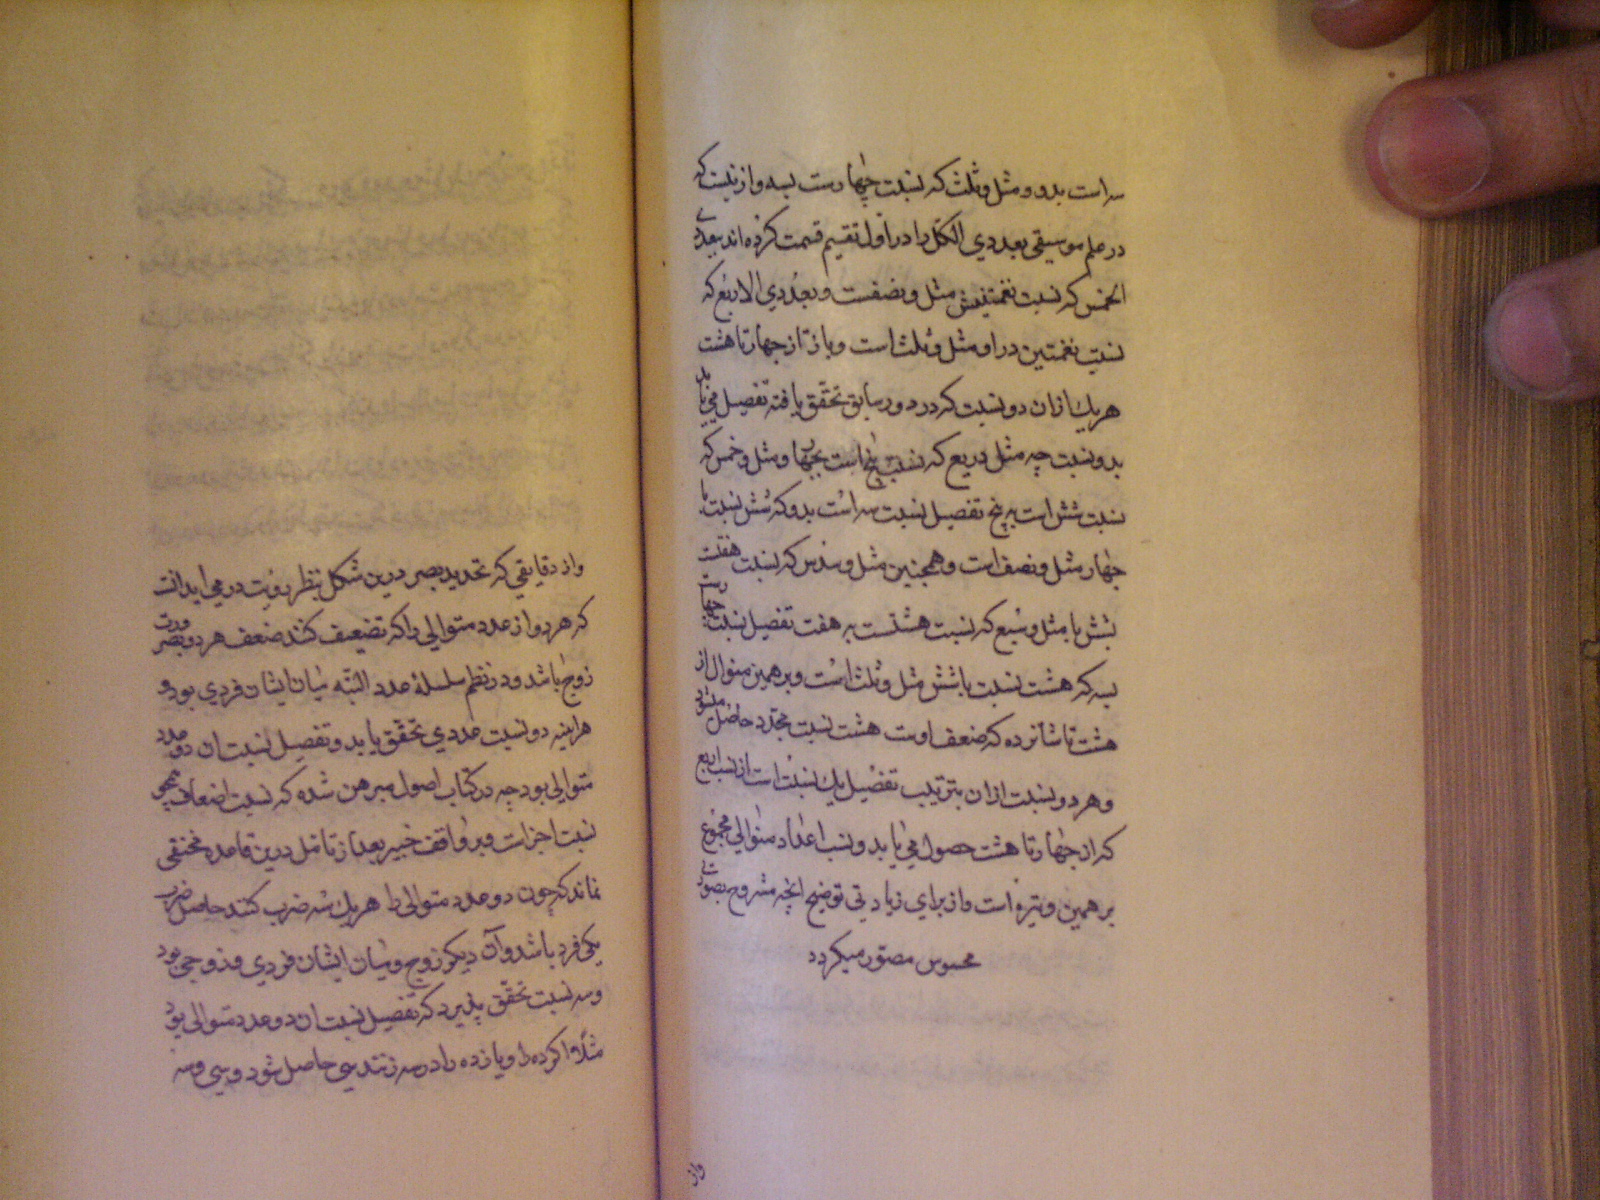 سه است بدو و مثل و ثلث که نسبت چهارست بسه و ازینست که
در علم موسیقی بعد ذی الکل را در اول تقسیم قسمت کرده اند ببعد ذی
الخمس که نسبت نغمتینش مثل و نصفست و بعد ذی الاربع که
نسبت نغمتین در او مثل و ثلث است و باز تا از چهار تا هشت
هر یک ازان دو نسبت که در دور سابق تحقق یافته تفصیل می یابد
بدو نسبت چه مثل و ربع که نسبت پنج است بچهار و مثل و خمس که
نسبت شش است به پنج تفصیل نسبت سه است بدو که شش نسبت با
چهار مثل و نصف است و همچنین مثل و سدس که نسبت هفتست
بشش با مثل و سبع که نسبت هشتست به هفت تفصیل نسبت چهارست
بسه که هشت نسبت باشش مثل و ثلث است و بر همین منوال از
هشت تا شانزده که ضعف اوست هشت نسبت مجدد حاصل میشود
و هر دو نسبت ازان بترتیب تفصیل یک نسبت است از نسب اربع
که از چهار تا هشت حصول می یابد و نسب اعداد متوالی مجموع
بر همین وتیره است و از برای زیادتی توضیح آنچه مشروح بصورتی
محسوس مصور میگردد
واز
واز دقایقی که تحدید بصر درین شکل بنظر رویت در می اید انست
که هر دو از عدد متوالی را که تضعیف کنند ضعف هر دو بضرورت
زوج باشد و در نظم سلسلهٔ عدد البته میان ایشان فردی بود و
هراینه دو نسبت عددی تحقق یابد و تفصیل نسبت ان دو عدد
متوالی بود چه در کتاب اصول مبرهن شده که نسبت اضعاف همچو
نسبت اجزاست و بر واقف خبیر بعد از تامل درین قاعده مختفی
نماند که چون دو عدد متوالی را هر یک بسه ضرب کنند حاصل ضرب
یکی فرد باشد و آن دیگر زوج و میان ایشان فردی و زوجی بود
و سه نسبت تحقق پذیرد که تفصیل نسبت ان دو عدد متوالی بود
مثلا اگر ده را و یازده را در سه زنند سی حاصل شود و سی و سه